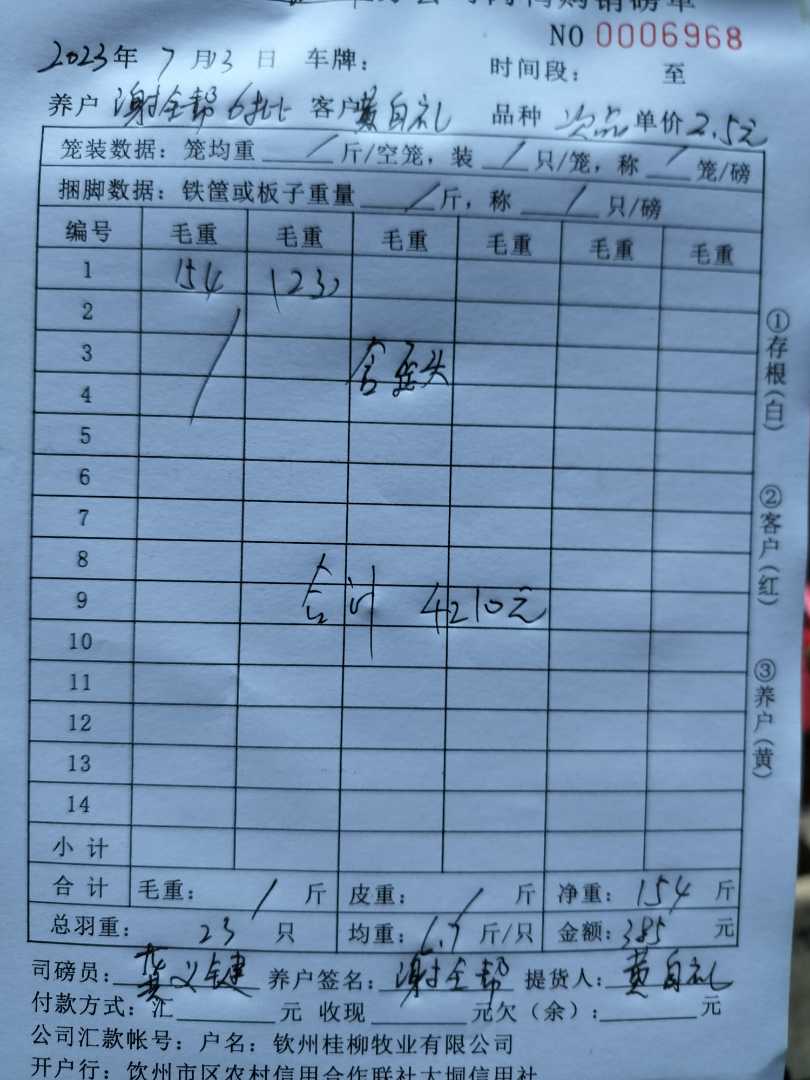 购销磅单
NO 0006968
2023年 7月13日 车牌： 时间段： 至
养户 谢全帮6批 客户 黄自礼 品种 次品 单价 2.5元
笼装数据：笼均重 / 斤/空笼，装 / 只/笼，称 / 笼/磅
捆脚数据：铁筐或板子重量 / 斤，称 / 只/磅
编号 毛重 毛重 毛重 毛重 毛重 毛重
1 154 (23)
2
3 含歪头
4
5
6
7
8
9 合计 4210元
10
11
12
13
14
小计
合计 毛重： / 斤 皮重： / 斤 净重：154 斤
总羽重： 23 只 均重：6.7 斤/只 金额：385 元
司磅员：龚义健 养户签名：谢全帮 提货人：黄自礼
付款方式：汇 元 收现 元欠（余）： 元
公司汇款帐号：户名：钦州桂柳牧业有限公司
开户行：钦州市区农村信用合作联社大垌信用社
①存根(白) ②客户(红) ③养户(黄)